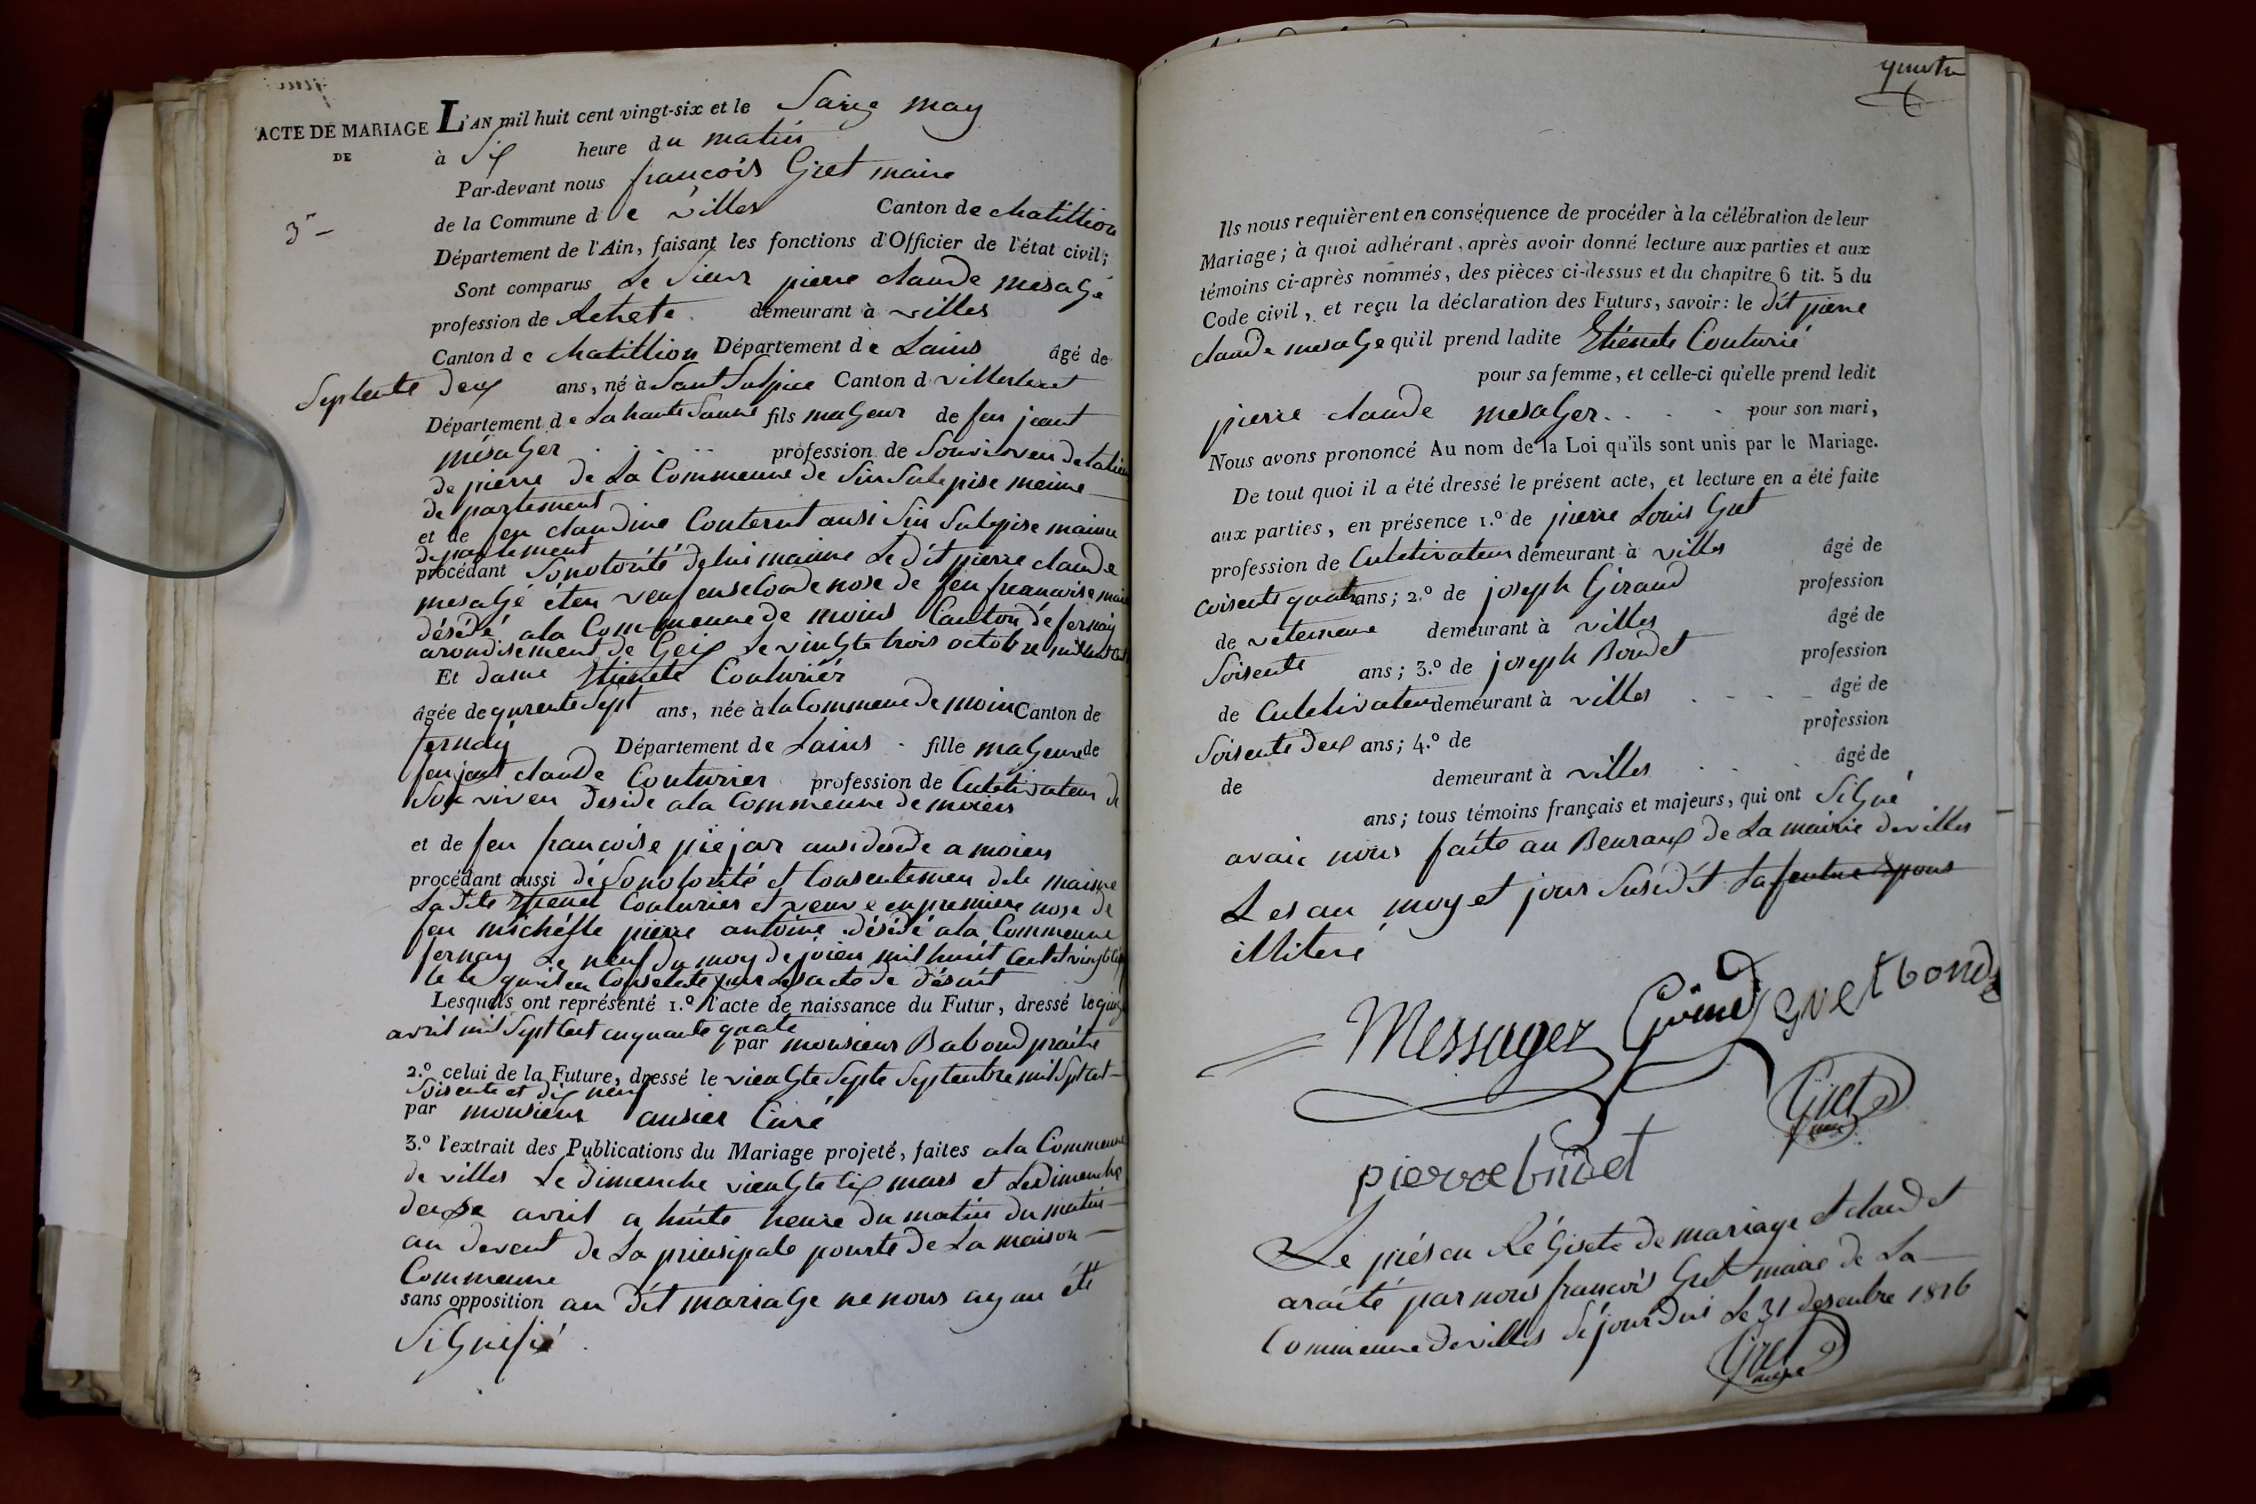 ACTE DE MARIAGE
DE
3.
L'AN mil huit cent vingt-six et le Saize may
à Six heure du matin
Par-devant nous francois Gret maire
de la Commune de villes Canton de chatillion
Département de l'Ain, faisant les fonctions d'Officier de l'état civil;
Sont comparus Le Sieur pierre claude mesagé
profession de demeurant à villes
Canton de chatillion Département de Lains âgé de
Septente deux ans, né à Sant Sulpice Canton d
Département de La haute Sanne fils mageur de feu jeant
mésager profession de
de pierre de La Commeune de Sin Sulepise meime
de partement
et de feu claudine ausi Sin Sulepise maime
de partement
procédant Sonotorité de lui maime Le dit pierre claude
mesagé éten veuf en seconde nose de feu francoise
désédé a la Commeune de moins Canton de fernay
arondisement de Geix Le vingte trois octobre
Et dame Etienete Couturiér
âgée de qurente Sept ans, née à la Commeune de moin Canton de
fernay Département de Lains fille mageure de
feu jant claude Couturier profession de Culetivateur
deside a la Commeune de moiens
et de feu francoise piejar ausi deside a moiens
procédant aussi dé Sonotorité et Consentemen dele maisme
La dite Etienet Couturier et veuve en premiere nose de
feu michélle pierre antoine désidé a la Commeune
fernay Le neuf du moy de mil huit Cent et vingt
le le quil en Consetate par Les acte de désait
Lesquels ont représenté 1.º l'acte de naissance du Futur, dressé le
avril mil Sept Cent cinquante quate
par monsieur Babond praitre
2.º celui de la Future, dressé le viengte Septe Septembre mil Sept cent
Soisente et dix neuf
par monsieur ausier Curé
3.º l'extrait des Publications du Mariage projeté, faites a la Commeune
de villes Le dimenche viengte six mars et Le dimenche
deuxe avril a huite heure du matin du matin
au devent de La prinsipale pourte de La maison
Commeune
sans opposition au dit mariage ne nous ayan été
Signifié

Ils nous requièrent en conséquence de procéder à la célébration de leur
Mariage; à quoi adhérant, après avoir donné lecture aux parties et aux
témoins ci-après nommés, des pièces ci-dessus et du chapitre 6 tit. 5 du
Code civil, et reçu la déclaration des Futurs, savoir: le dit pierre
claude mesage qu'il prend ladite Etiénete Couturié
pour sa femme, et celle-ci qu'elle prend ledit
pierre claude mesager pour son mari,
Nous avons prononcé Au nom de la Loi qu'ils sont unis par le Mariage.
De tout quoi il a été dressé le présent acte, et lecture en a été faite
aux parties, en présence 1.º de pierre Louis Gret
profession de Culetivateur demeurant à villes âgé de
quatre ans; 2.º de joseph Giraud profession
de demeurant à villes âgé de
Soisente ans; 3.º de joseph Bondet profession
de Culetivateur demeurant à villes âgé de
Soisente deux ans; 4.º de profession
de demeurant à villes âgé de
ans; tous témoins français et majeurs, qui ont Signé
avaic nous faite au Beuraux de La mairie de villes
Les an moy et jour Susedit La feuture epous
illiteré
Messager Gret bondet
Gret
maire
pierre
Le présen Régiste de mariage et
araité par nous francois Gret maire de La
Commeune de villes Sejourdui Le 31 desenbre 1826
Gret
maire